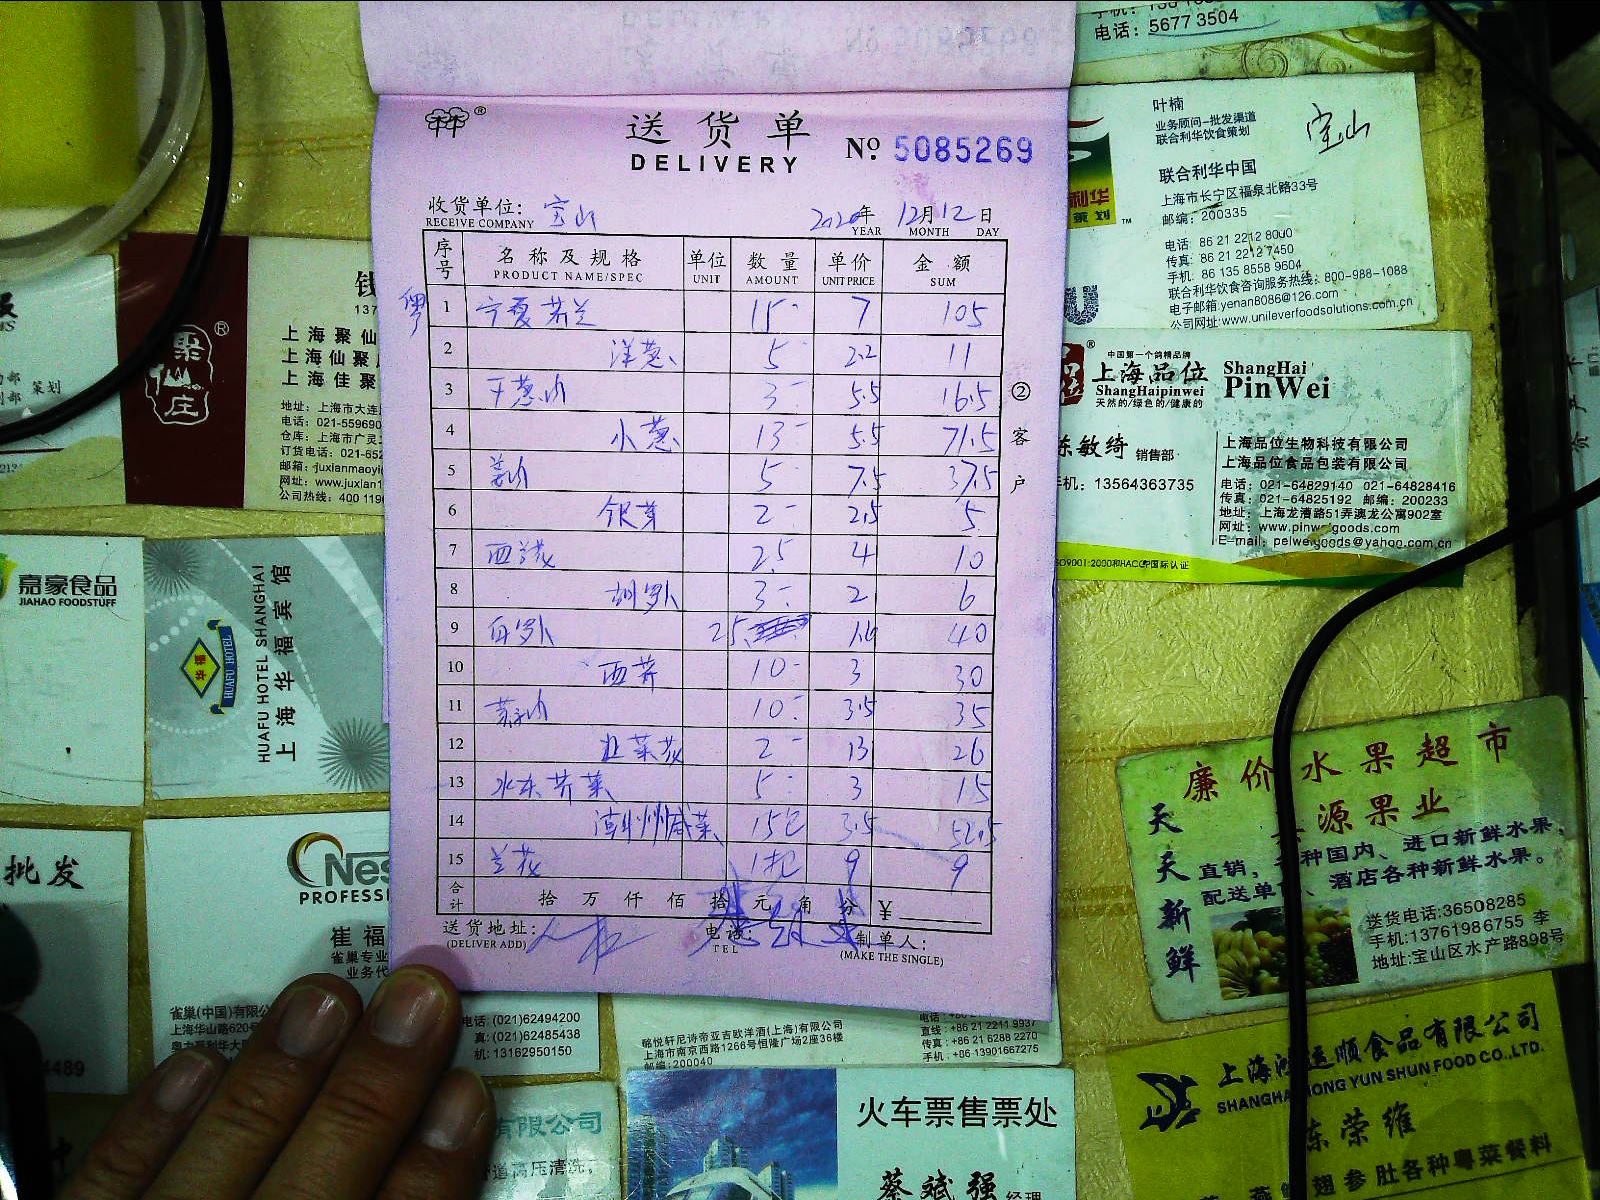 送货单
DELIVERY
No. 5085269
收货单位: 宝山
RECEIVE COMPANY
2020年 12月12日
YEAR MONTH DAY
序号 名称及规格 单位 数量 单价 金额
PRODUCT NAME/SPEC UNIT AMOUNT UNIT PRICE SUM
1 宁夏芥兰 15- 7 105
2 洋葱 5- 2.2 11
3 3- 5.5 16.5
4 小葱 13- 5.5 71.5
5 5- 7.5 37.5
6 银芽 2- 2.5 5
7 25 4 10
8 胡罗卜 3- 2 6
9 白罗卜 25 1.6 40
10 西芹 10- 3 30
11 10- 3.5 35
12 韭菜花 2- 13 26
13 水东芥菜 5- 3 15
14 潮州咸菜 15 3.5 52.5
15 兰花 1把 9 9
合计 拾 万 仟 佰 拾 元 角 分 ¥
送货地址:
(DELIVER ADD)
电话:
TEL
制单人:
(MAKE THE SINGLE)
② 客户
电话: 5677 3504
叶楠
业务顾问-批发渠道
联合利华饮食策划
宝山
联合利华中国
上海市长宁区福泉北路33号
邮编: 200335
电话: 86 21 2212 8000
传真: 86 21 2212 7450
手机: 86 135 8558 9604
联合利华饮食咨询服务热线: 800-988-1088
电子邮箱:yenan8086@126.com
公司网址:www.unileverfoodsolutions.com.cn
中国第一个鸽精品牌
上海品位
ShangHaipinwei
天然的/绿色的/健康的
ShangHai
PinWei
敏绮 销售部
手机: 13564363735
上海品位生物科技有限公司
上海品位食品包装有限公司
电话: 021-64829140 021-64828416
传真: 021-64825192 邮编: 200233
地址: 上海龙漕路51弄澳龙公寓902室
网址: www.pinweigoods.com
E-mail: peiweigoods@yahoo.com.cn
ISO9001:2000和HACCP国际认证
廉价水果超市
源果业
天天新鲜
直销, 种国内、进口新鲜水果,
配送单 、酒店各种新鲜水果。
送货电话:36508285
手机:13761986755 李
地址:宝山区水产路898号
上海鸿运顺食品有限公司
SHANGHAI HONG YUN SHUN FOOD CO.,LTD.
荣维
翅参肚各种粤菜餐料
火车票售票处
蔡斌强 经理
翰悦轩尼诗帝亚吉欧洋酒(上海)有限公司
上海市南京西路1266号恒隆广场2座36楼
邮编:200040
直线: +86 21 2211 9937
传真: +86 21 6288 2270
手机: +86 13901667275
有限公司
道高压清洗,
Nes
PROFESSI
崔福
雀巢专业
业务代
雀巢(中国)有限公
上海华山路620号
电话: (021)62494200
真: (021)62485438
机: 13162950150
批发
4489
嘉豪食品
JIAHAO FOODSTUFF
华福
HUAFU HOTEL
HUAFU HOTEL SHANGHAI
上海华福宾馆
聚仙庄
钱
137
上海聚仙
上海仙聚
上海佳聚
地址: 上海市大连
电话: 021-559690
仓库: 上海市广灵二
订货电话: 021-652
邮箱: juxianmaoyi
网址: www.juxian1
公司热线: 400 1196
策划